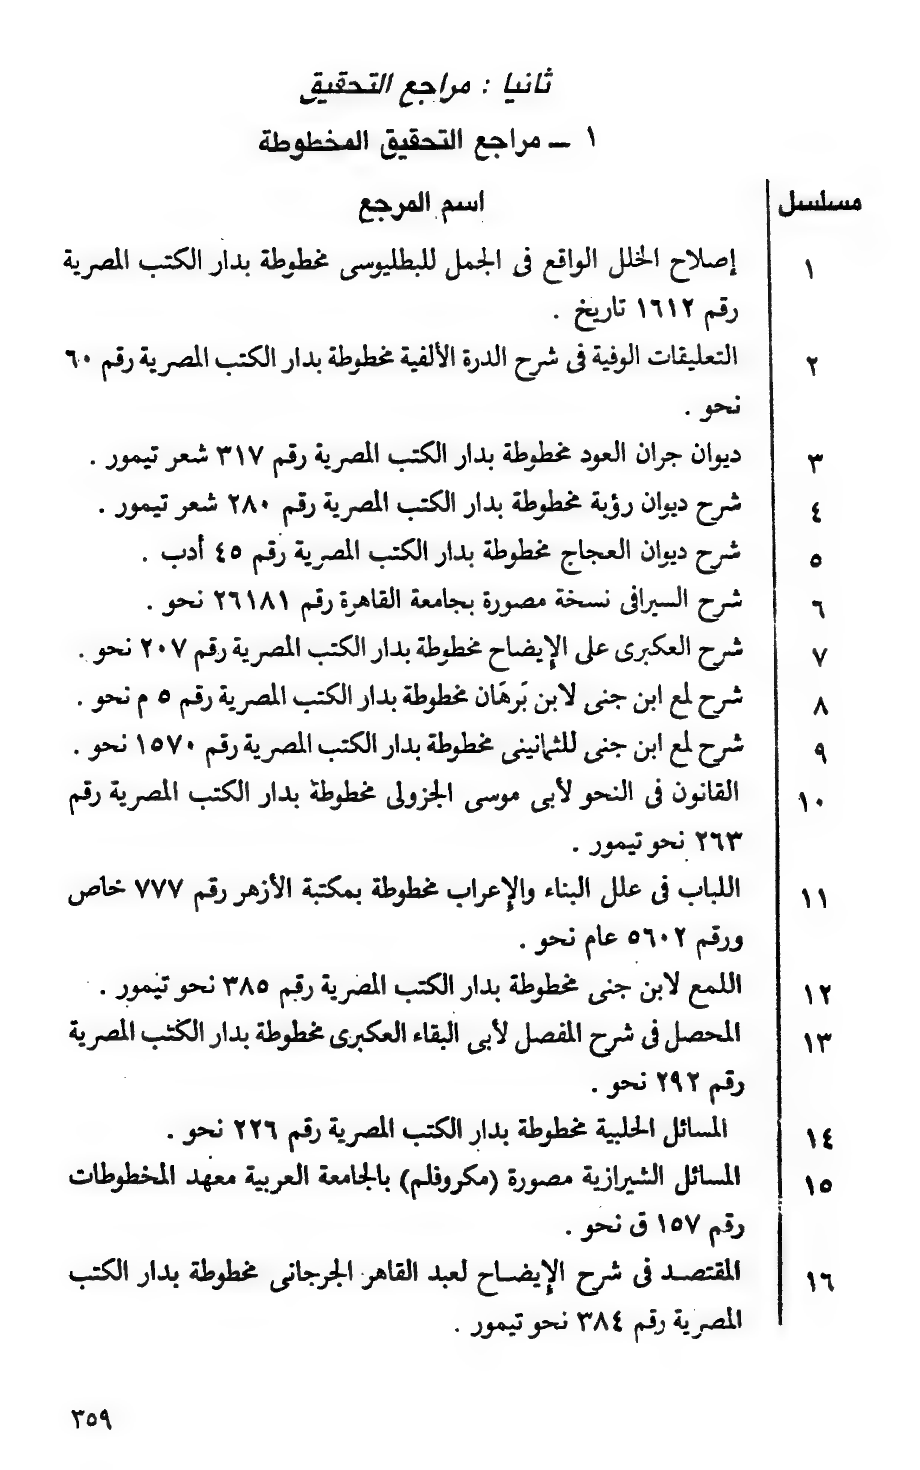 ثانيا : مراجع التحقيق
١ ــ مراجع التحقيق المخطوطة
مسلسل اسم المرجع
١ إصلاح الخلل الواقع فى الجمل للبطليوسى مخطوطة بدار الكتب المصرية
رقم ١٦١٢ تاريخ .
٢ التعليقات الوفية فى شرح الدرة الألفية مخطوطة بدار الكتب المصرية رقم ٦٠
نحو .
٣ ديوان جران العود مخطوطة بدار الكتب المصرية رقم ٣١٧ شعر تيمور .
٤ شرح ديوان رؤبة مخطوطة بدار الكتب المصرية رقم ٢٨٠ شعر تيمور .
٥ شرح ديوان العجاج مخطوطة بدار الكتب المصرية رقم ٤٥ أدب .
٦ شرح السيرافى نسخة مصورة بجامعة القاهرة رقم ٢٦١٨١ نحو .
٧ شرح العكبرى على الإيضاح مخطوطة بدار الكتب المصرية رقم ٢٠٧ نحو .
٨ شرح لمع ابن جنى لابن بَرهَان مخطوطة بدار الكتب المصرية رقم ٥ م نحو .
٩ شرح لمع ابن جنى للثمانينى مخطوطة بدار الكتب المصرية رقم ١٥٧٠ نحو .
١٠ القانون فى النحو لأبى موسى الجزولى مخطوطة بدار الكتب المصرية رقم
٢٦٣ نحو تيمور .
١١ اللباب فى علل البناء والإعراب مخطوطة بمكتبة الأزهر رقم ٧٧٧ خاص
ورقم ٥٦٠٢ عام نحو .
١٢ اللمع لابن جنى مخطوطة بدار الكتب المصرية رقم ٣٨٥ نحو تيمور .
١٣ المحصل فى شرح المفصل لأبى البقاء العكبرى مخطوطة بدار الكتب المصرية
رقم ٢٩٢ نحو .
١٤ المسائل الحلبية مخطوطة بدار الكتب المصرية رقم ٢٢٦ نحو .
١٥ المسائل الشيرازية مصورة (مكروفلم) بالجامعة العربية معهد المخطوطات
رقم ١٥٧ ق نحو .
١٦ المقتصد فى شرح الإيضاح لعبد القاهر الجرجانى مخطوطة بدار الكتب
المصرية رقم ٣٨٤ نحو تيمور .
٣٥٩